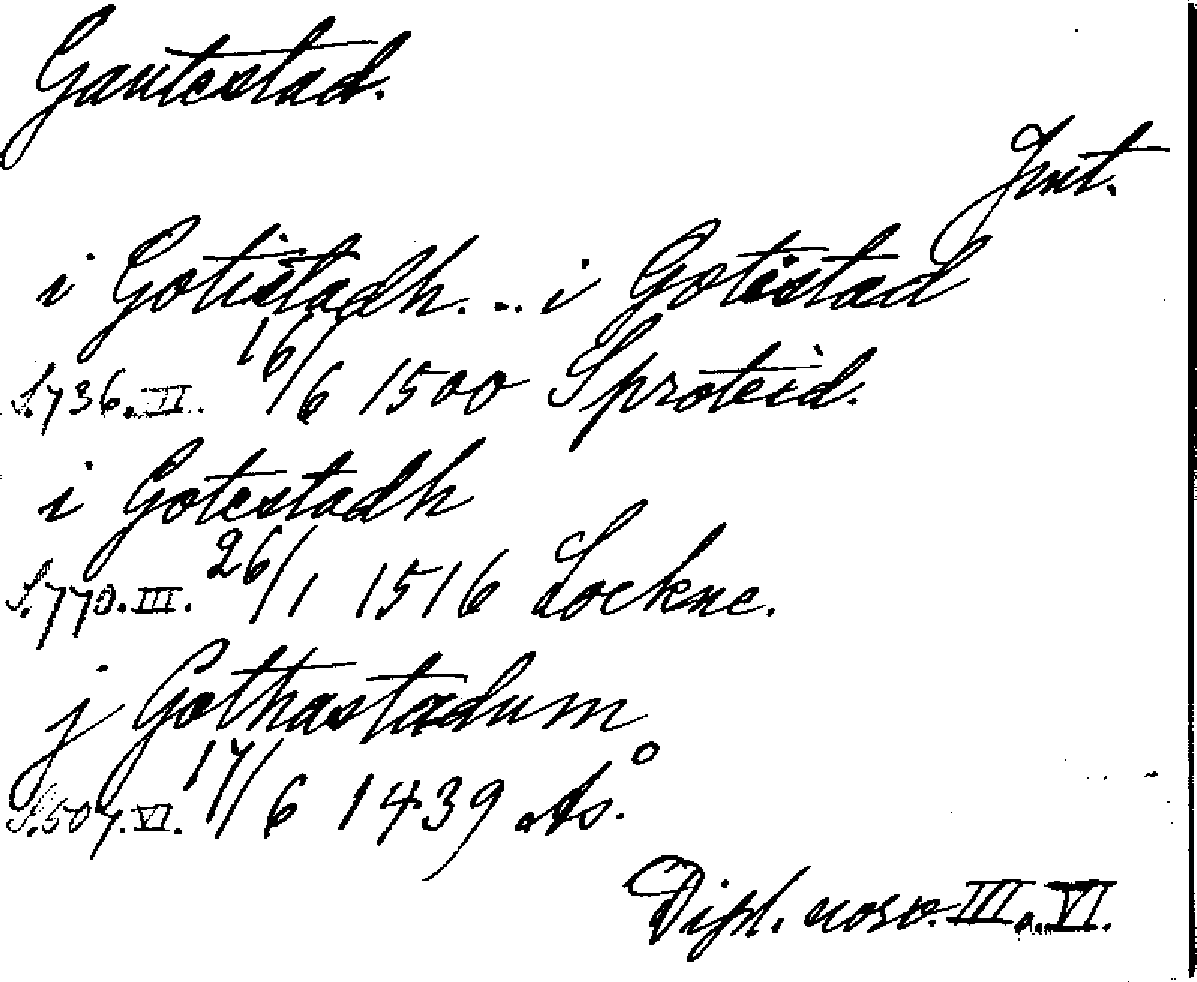 Gautestad.
Jmt.
i Gotistadh... i Gotistad
S. 736. II. 16/6 1500 Sproteid.
i Gotestadh
S. 770. III. 26/1 1516 Lockne.
j Gothastadum
S. 507. VI. 17/6 1439 Ås.
Dipl. norv. III o. VI.